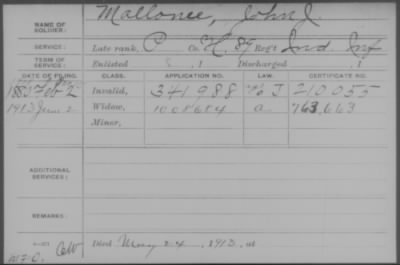 Mallonee, John J.
NAME OF SOLDIER:
SERVICE: Late rank, P Co. H, 89 Reg't Ind. Inf
TERM OF SERVICE: Enlisted , 1 Discharged , 1
DATE OF FILING. CLASS. APPLICATION NO. LAW. CERTIFICATE NO.
1880 Feb 2 Invalid, 341988 J 210055
1913 June 2 Widow, 1008684 a 763,663
Minor,
ADDITIONAL SERVICES:
REMARKS:
Died May 24, 1913, at